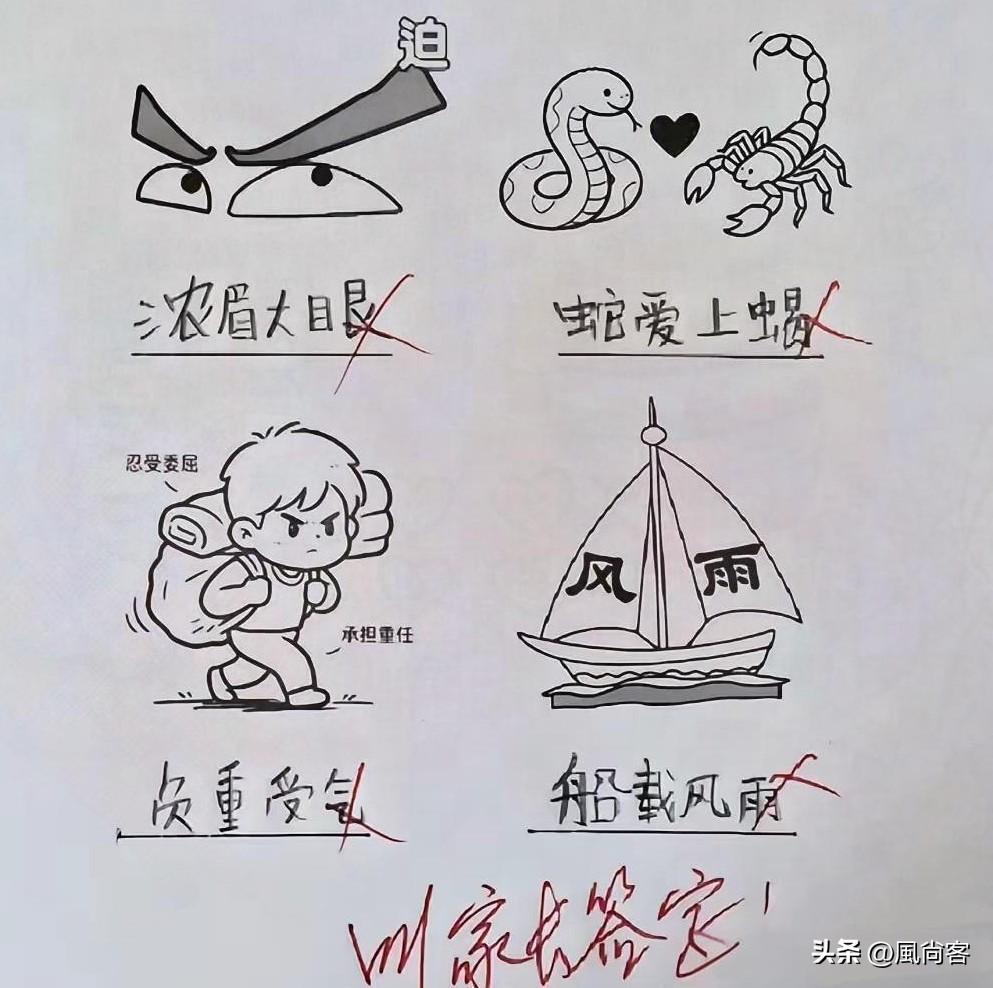 迫
浓眉大眼
蛇爱上蝎
忍受委屈
承担重任
风 雨
负重受气
船载风雨
叫家长签字!
头条 @風尚客